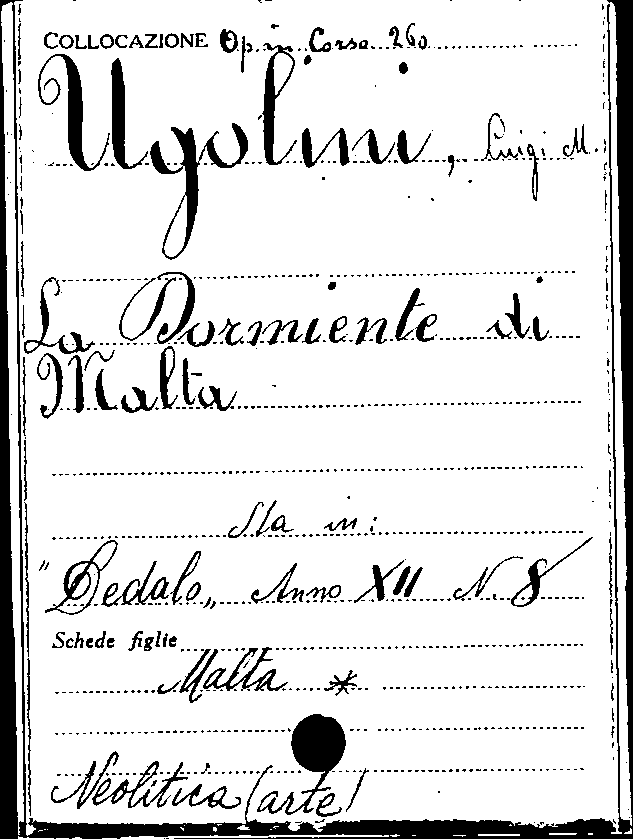 COLLOCAZIONE Op. in Corso 260
Ugolini, Luigi M.
La Dormiente di
Malta
Sta in:
"Dedalo„ Anno XII N. 8
Schede figlie
Malta *
Neolitica (arte)